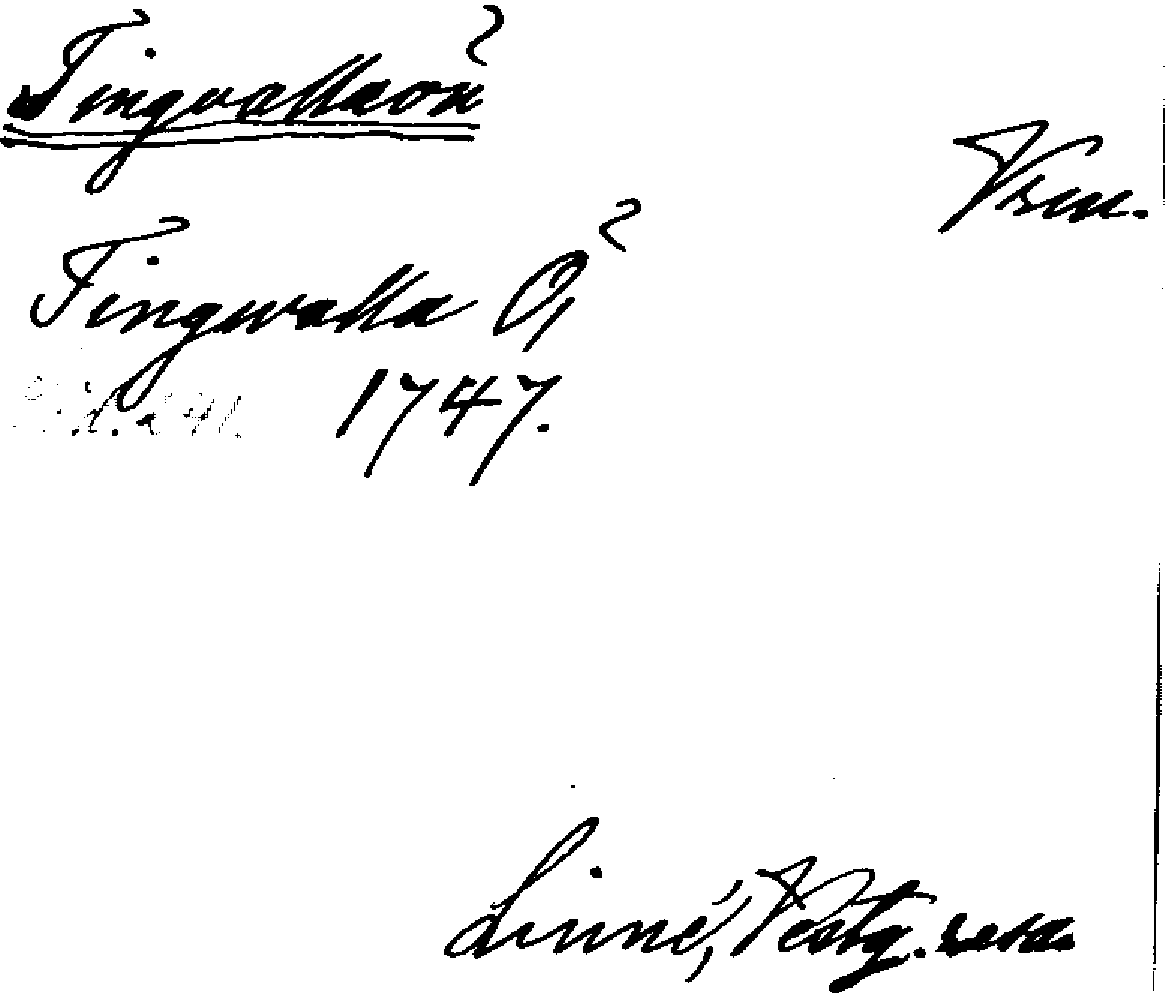 Tingvallaön
Vrm.
Tingwalla Ö
1747.
Linné, Vestg. resa.